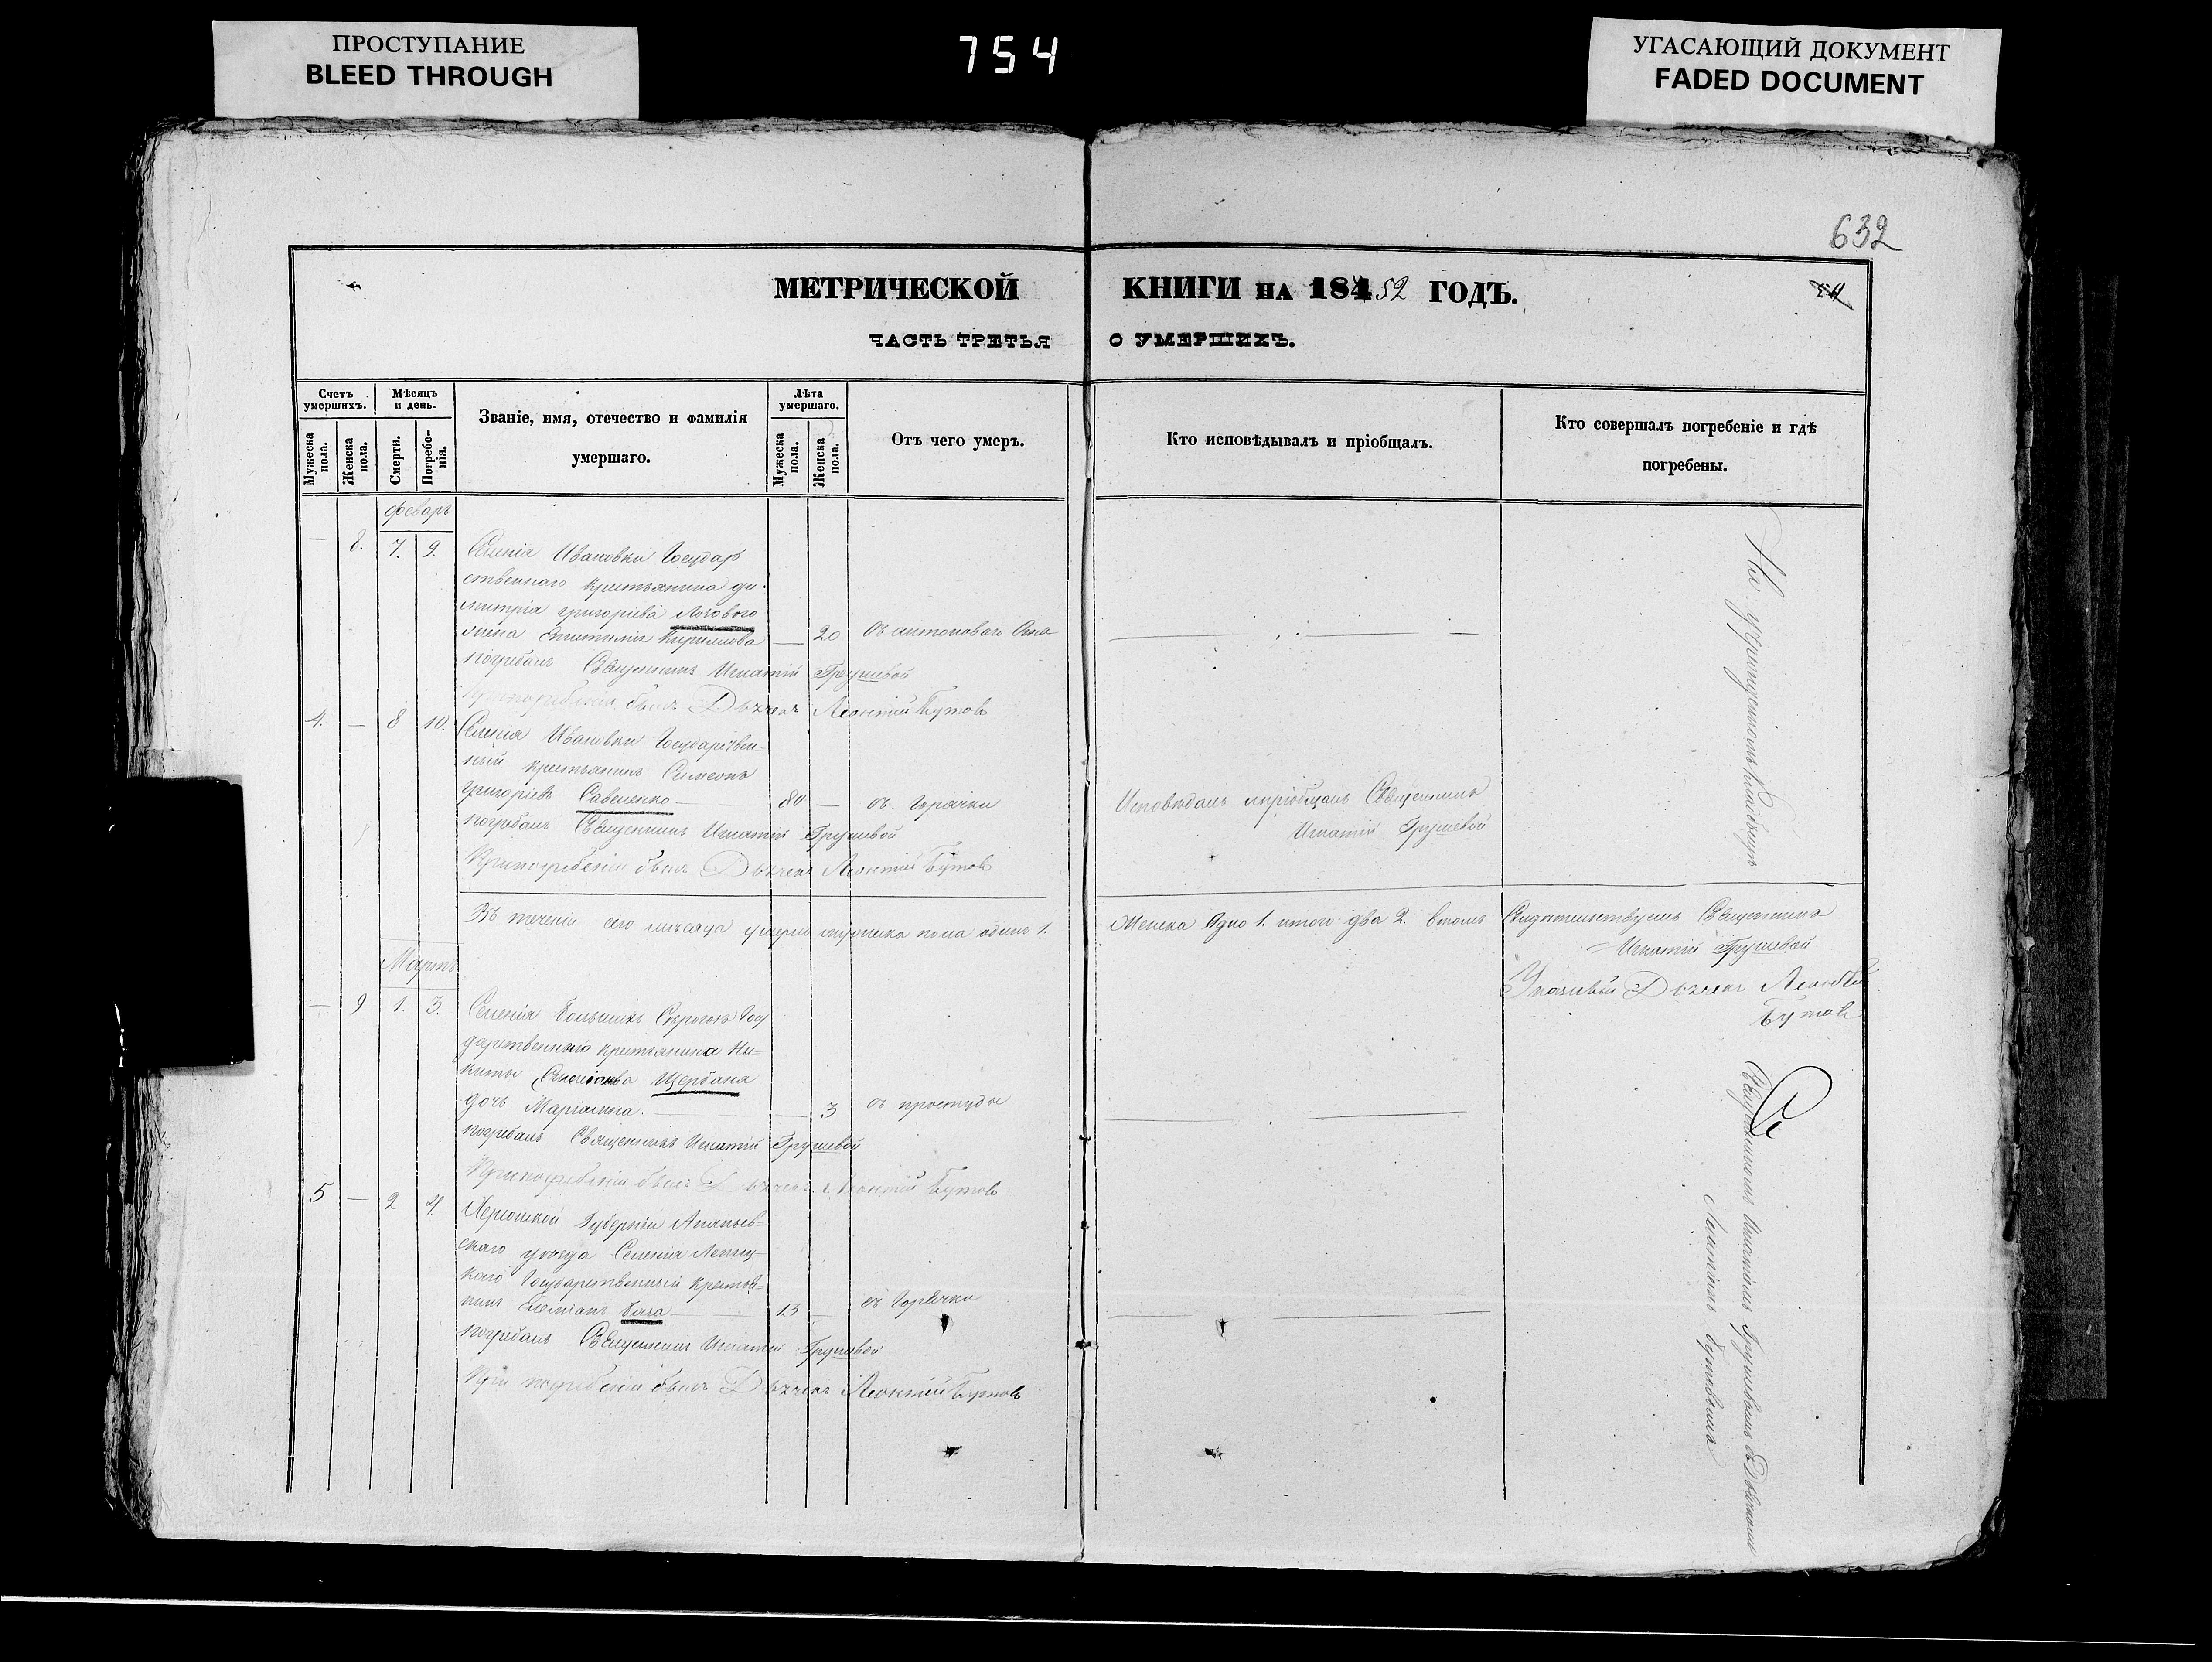 ПРОСТУПАНИЕ
BLEED THROUGH
754
УГАСАЮЩИЙ ДОКУМЕНТ
FADED DOCUMENT
632
МЕТРИЧЕСКОЙ КНИГИ НА 184 52 ГОДЪ.
ЧАСТЬ ТРЕТЬЯ О УМЕРШИХЪ.
Счетъ умершихъ.
Мужеска пола.
Женска пола.
Мѣсяцъ и день.
Смерти.
Погребенія.
Званіе, имя, отечество и фамилія
умершаго.
Лѣта умершаго.
Мужеска пола.
Женска пола.
Отъ чего умеръ.
Кто исповѣдывалъ и пріобщалъ.
Кто совершалъ погребеніе и гдѣ
погребены.
февар
— 8. 7. 9. Селенія Ивановки Государ
ственнаго крестьянина Ди-
митрія Григоріева Лозового
жена Кирилова — 20 отъ антонового
погребалъ Священникъ Игнатій Грушевой
При погребеніи былъ Дьячекъ Леонтій Бутовъ
4. — 8 10. Селенія Ивановки Государствен-
ный крестьянинъ Симеонъ
Григоріевъ Савененко — 80 — отъ Горячки
Исповѣдалъ и пріобщалъ Священникъ
Игнатій Грушевой
погребалъ Священникъ Игнатій Грушевой
При погребеніи былъ Дьячекъ Леонтій Бутовъ
Въ теченіи сего мѣсяца умерло мужеска пола одинъ 1. Женска Одно 1. итого два 2. въ томъ Свидѣтельствуемъ Священникъ
Игнатій Грушевой
Указный Дьячекъ Леонтій
Бутовъ
Мартъ
— 9 1. 3. Селенія Государственнаго крестьянина Ни-
киты Щербана
дочь Маріанна. — 3 отъ простуды
погребалъ Священникъ Игнатій Грушевой
При погребеніи былъ Дьячекъ Леонтій Бутовъ
5 — 2 4. Херсонской Губерніи Ананьев-
скаго уѣзда Селенія
Государственный крестья-
нинъ — 13 — отъ Горячки
погребалъ Священникъ Игнатій Грушевой
При погребеніи былъ Дьячекъ Леонтій Бутовъ
На кладбищѣ
Священникомъ Игнатіемъ Грушевымъ съ Дьячкомъ
Леонтіемъ Бутовымъ